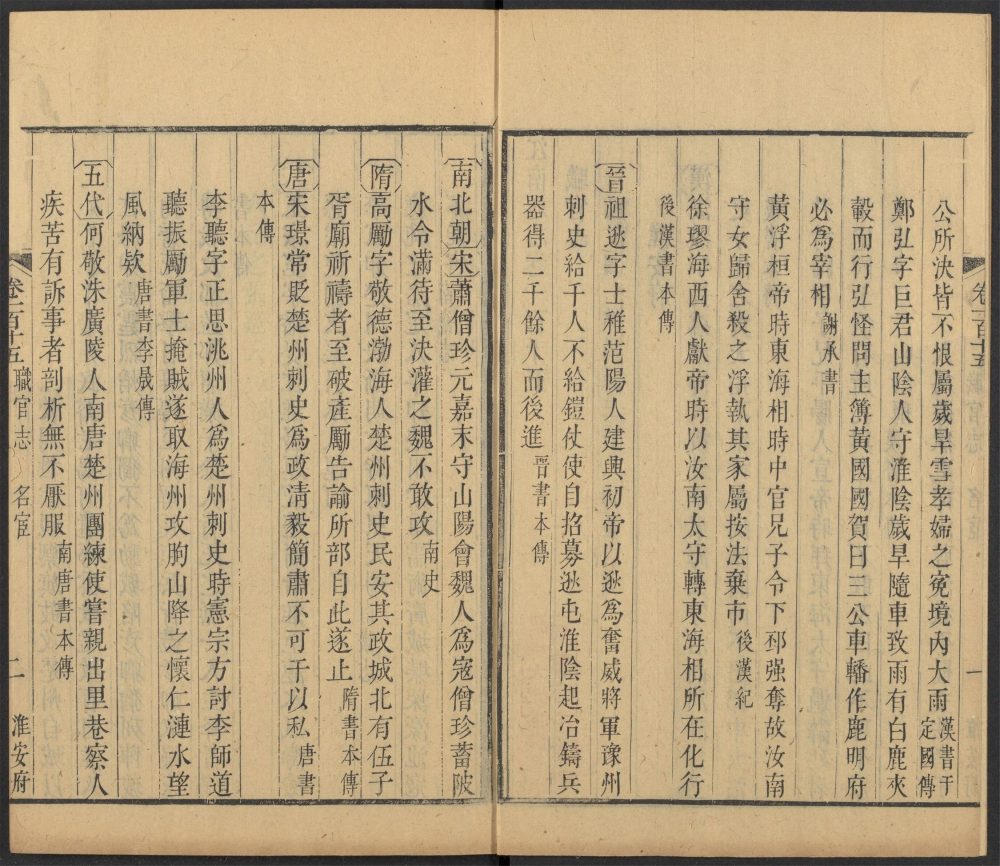 卷一百十五
一
公所決皆不恨屬歲旱雪孝婦之冤境內大雨漢書于定國傳
鄭弘字巨君山陰人守淮陰歲旱隨車致雨有白鹿夾
轂而行弘怪問主簿黃國國賀曰三公車轓作鹿明府
必為宰相謝承書
黃浮桓帝時東海相時中官兄子令下邳强奪故汝南
守女歸舍殺之浮執其家屬按法棄市後漢紀
徐璆海西人獻帝時以汝南太守轉東海相所在化行
後漢書本傳
晉祖逖字士稚范陽人建興初帝以逖為奮威將軍豫州
刺史給千人不給鎧仗使自招募逖屯淮陰起冶鑄兵
器得二千餘人而後進晉書本傳
南北朝宋蕭僧珍元嘉末守山陽會魏人為寇僧珍蓄陂
水令滿待至決灌之魏不敢攻南史
隋高勵字敬德渤海人楚州刺史民安其政城北有伍子
胥廟祈禱者至破產勵告諭所部自此遂止隋書本傳
唐宋璟常貶楚州刺史為政清毅簡肅不可干以私唐書
本傳
李聽字正思洮州人為楚州刺史時憲宗方討李師道
聽振勵軍士掩賊遂取海州攻朐山降之懷仁漣水望
風納欵唐書李晟傳
五代何敬洙廣陵人南唐楚州團練使嘗親出里巷察人
疾苦有訴事者剖析無不厭服南唐書本傳
卷一百十五 職官志 名宦 二 淮安府